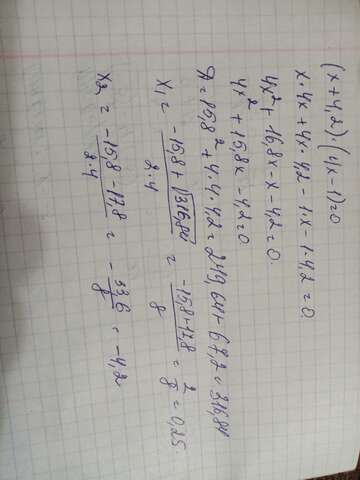 (x+4,2)·(4x-1)=0
x·4x+4x·4,2-1·x-1·4,2=0.
4x²+16,8x-x-4,2=0.
4x²+15,8x-4,2=0
D=15,8²+4·4·4,2=249,64+67,2=316,84
x₁ = (-15,8+√316,84)/(2·4) = (-15,8+17,8)/8 = 2/8 = 0,25.
x₂ = (-15,8-17,8)/(2·4) = -33,6/8 = -4,2